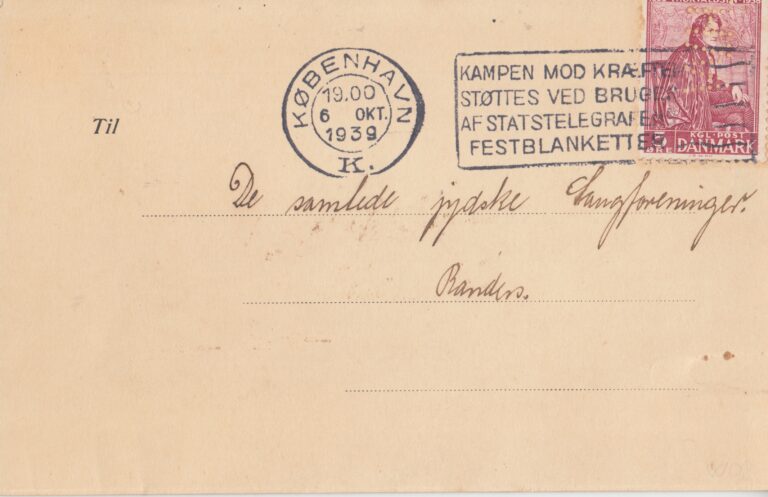 KØBENHAVN
19.00
6 OKT.
1939
K.
KAMPEN MOD KRÆFTEN
STØTTES VED BRUGEN
AF STATSTELEGRAFENS
FESTBLANKETTER
KGL·POST
5 DANMARK
Til
De samlede jydske Sangforeninger.
Randers.